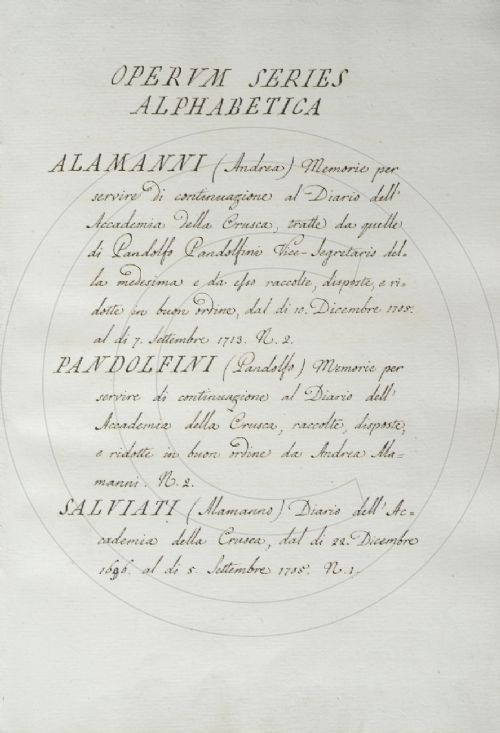 OPERVM SERIES
ALPHABETICA
ALAMANNI (Andrea) Memorie per
servire di continuazione al Diario dell'
Accademia della Crusca, tratte da quelle
di Pandolfo Pandolfini Vice-Segretario del=
la medesima e da esso raccolte, disposte, e ri=
dotte in buon ordine, dal dì 10. Dicembre 1705.
al dì 7. Settembre 1713. N. 2.
PANDOLFINI (Pandolfo) Memorie per
servire di continuazione al Diario dell'
Accademia della Crusca, raccolte, disposte,
e ridotte in buon ordine da Andrea Ala=
manni. N. 2.
SALVIATI (Alamanno) Diario dell'Ac=
cademia della Crusca, dal dì 22. Dicembre
1696. al dì 5. Settembre 1705. N. 1.